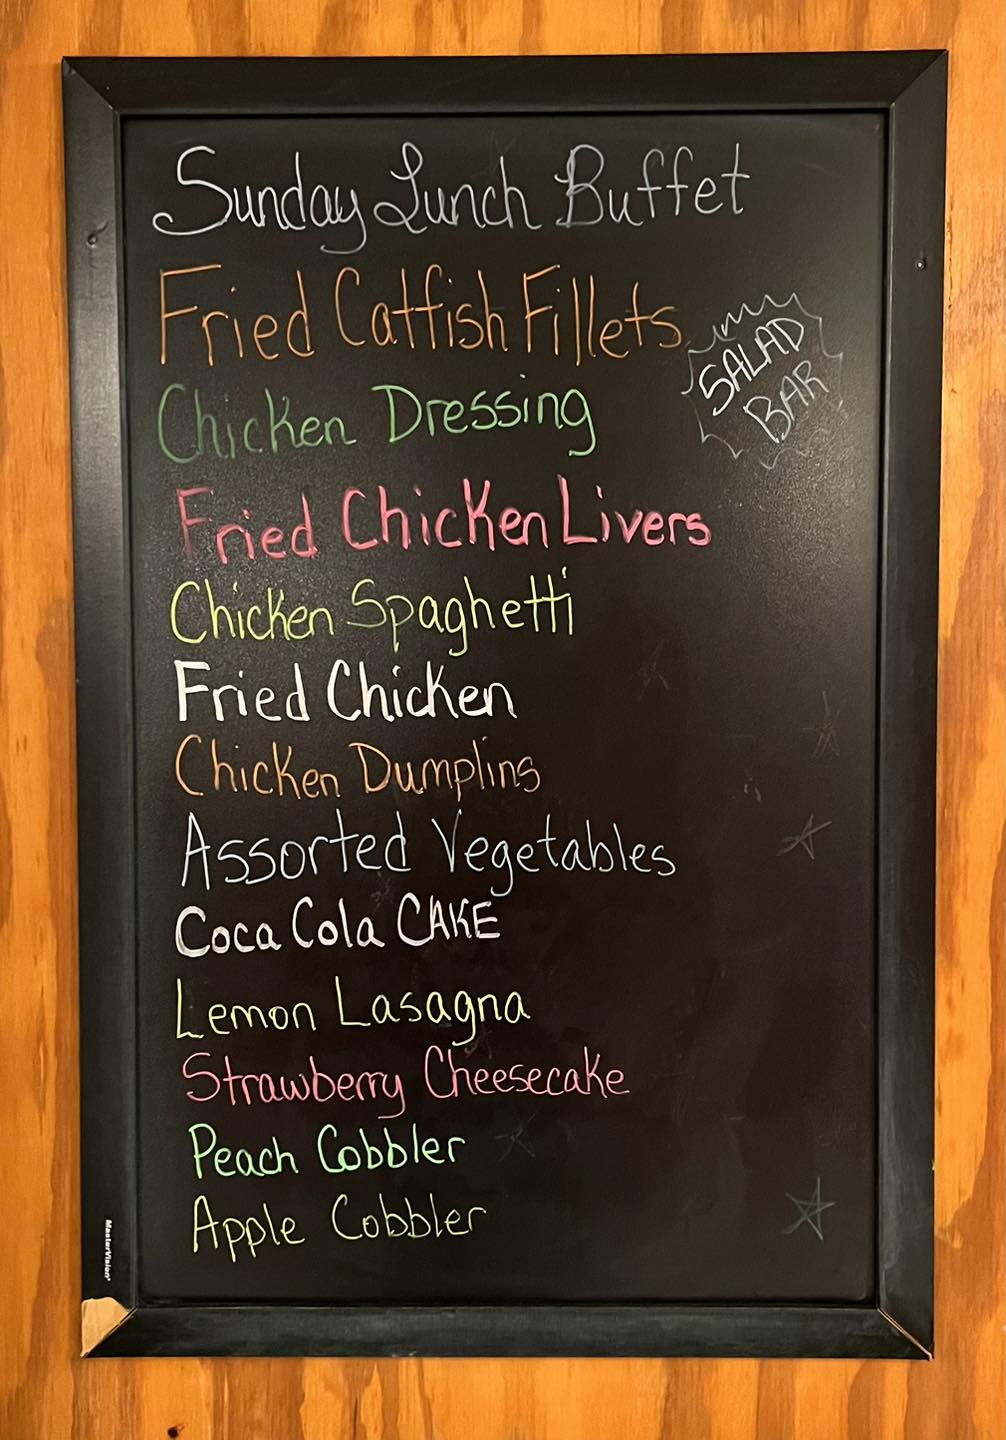 Sunday Lunch Buffet
Fried Catfish Fillets
SALAD
BAR
Chicken Dressing
Fried Chicken Livers
Chicken Spaghetti
Fried Chicken
Chicken Dumplins
Assorted Vegetables
Coca Cola CAKE
Lemon Lasagna
Strawberry Cheesecake
Peach Cobbler
Apple Cobbler
MasterVision®